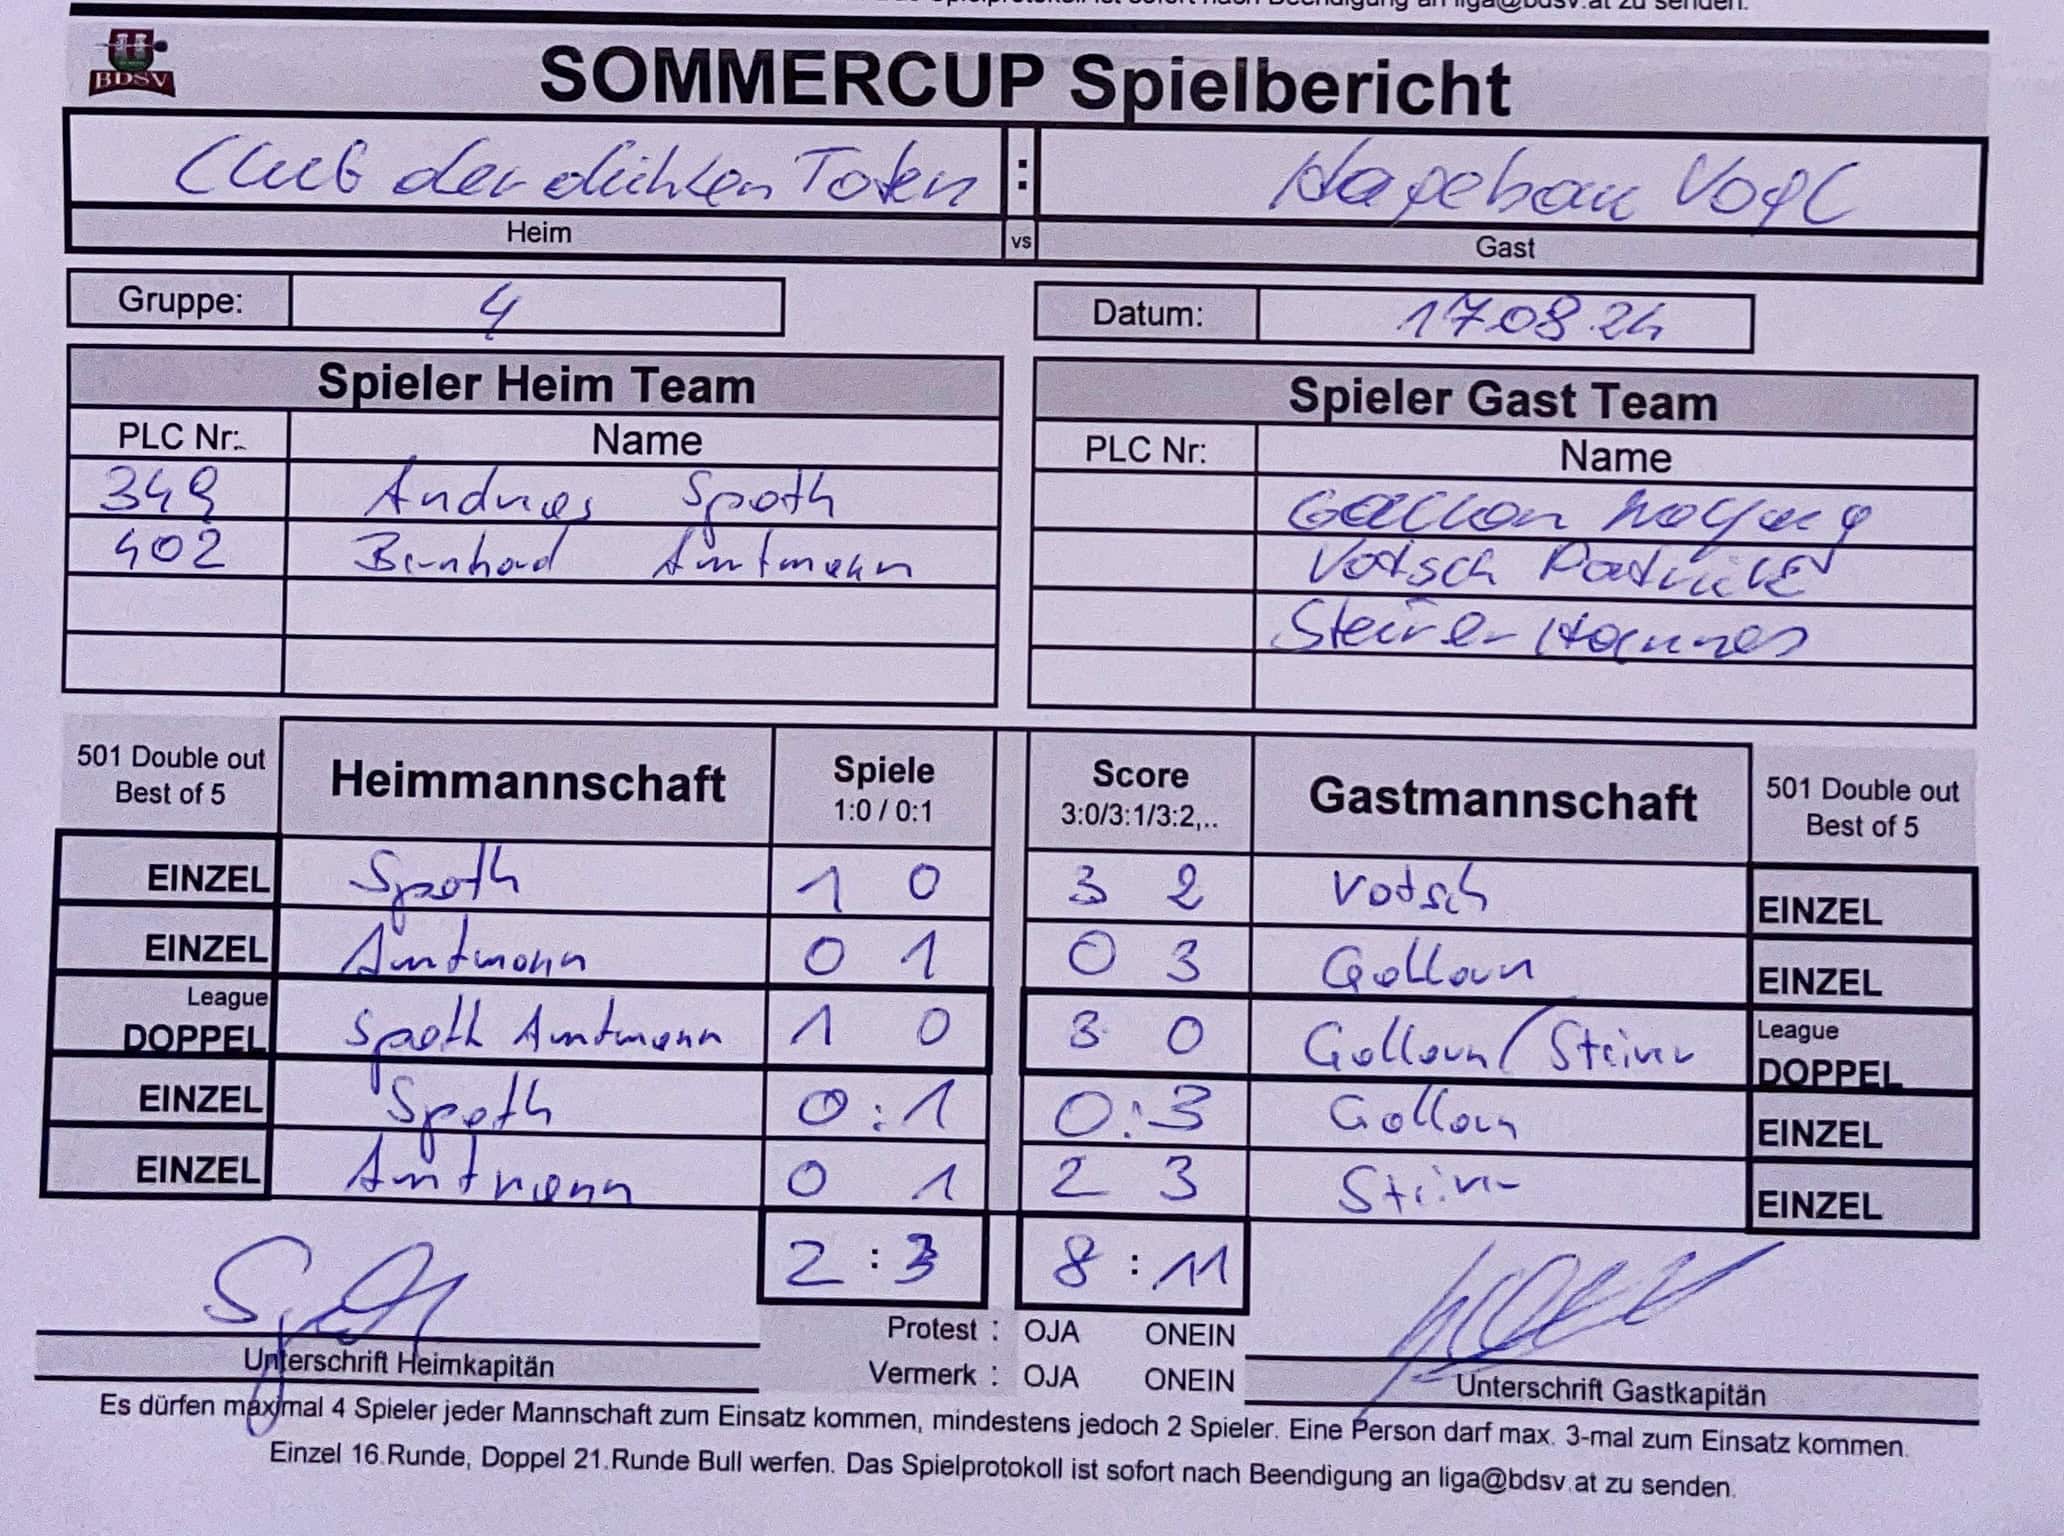 BDSV
SOMMERCUP Spielbericht
Club der dichten Toten : Hagebau Vogl
Heim vs Gast
Gruppe: 4 Datum: 17.08.24
Spieler Heim Team Spieler Gast Team
PLC Nr: Name PLC Nr: Name
349 Andreas Spath
402 Bernhard Amtmann Votsch Patrick
Hannes
501 Double out Best of 5 Heimmannschaft Spiele 1:0 / 0:1 Score 3:0/3:1/3:2,.. Gastmannschaft 501 Double out Best of 5
EINZEL Spath 1 0 3 2 Votsch EINZEL
EINZEL Amtmann 0 1 0 3 EINZEL
League DOPPEL Spath Amtmann 1 0 3 0 League DOPPEL
EINZEL Spath 0:1 0:3 EINZEL
EINZEL Amtmann 0 1 2 3 EINZEL
2 : 3 8 : 11
Protest : OJA ONEIN
Unterschrift Heimkapitän Vermerk : OJA ONEIN Unterschrift Gastkapitän
Es dürfen maximal 4 Spieler jeder Mannschaft zum Einsatz kommen, mindestens jedoch 2 Spieler. Eine Person darf max. 3-mal zum Einsatz kommen.
Einzel 16.Runde, Doppel 21.Runde Bull werfen. Das Spielprotokoll ist sofort nach Beendigung an liga@bdsv.at zu senden.